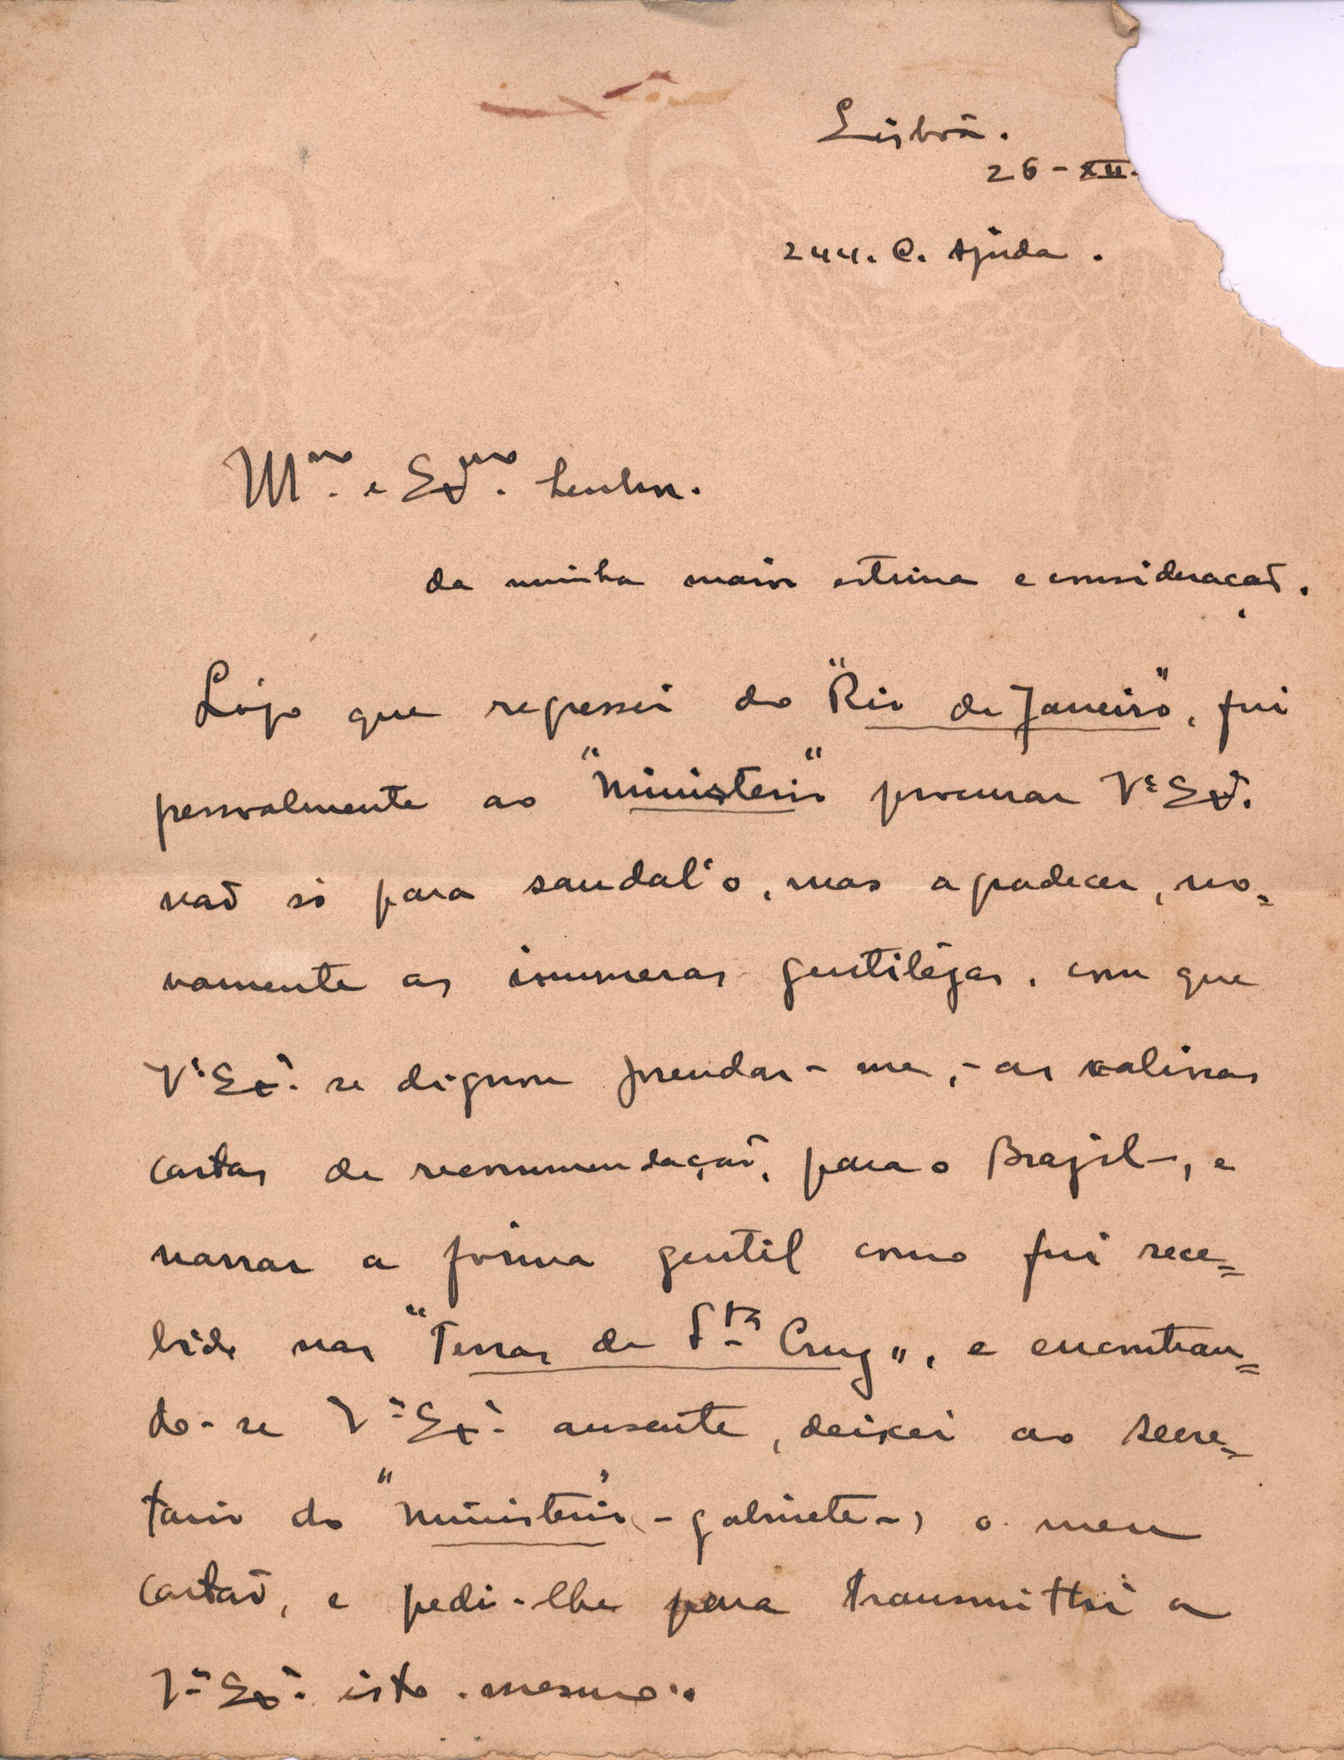 Lisbôa.
26-XII.
244. C. Ajuda.
Illmo. e Exmo. Senhor.
da minha maior estima e consideração.
Lógo que regressei do "Rio de Janeiro", fui
pessoalmente ao "Ministerio" procurar Vª Exª.
não só para saudal'o, mas agradecer, no=
vamente as inumeras gentilêzas, com que
Vª Exª. se dignou prendar-me, - as valiosas
cartas de recommendação, para o Brazil-, e
narrar a fórma gentil como fui rece=
bido nas "Terras de Sta Cruz", e encontran=
do-se Vª Exª. ausente, deixei ao secre=
tario do "Ministerio" (-gabinete-) o meu
cartão, e pedi-lhe para transmittir a
Vª Exª. isto mesmo..